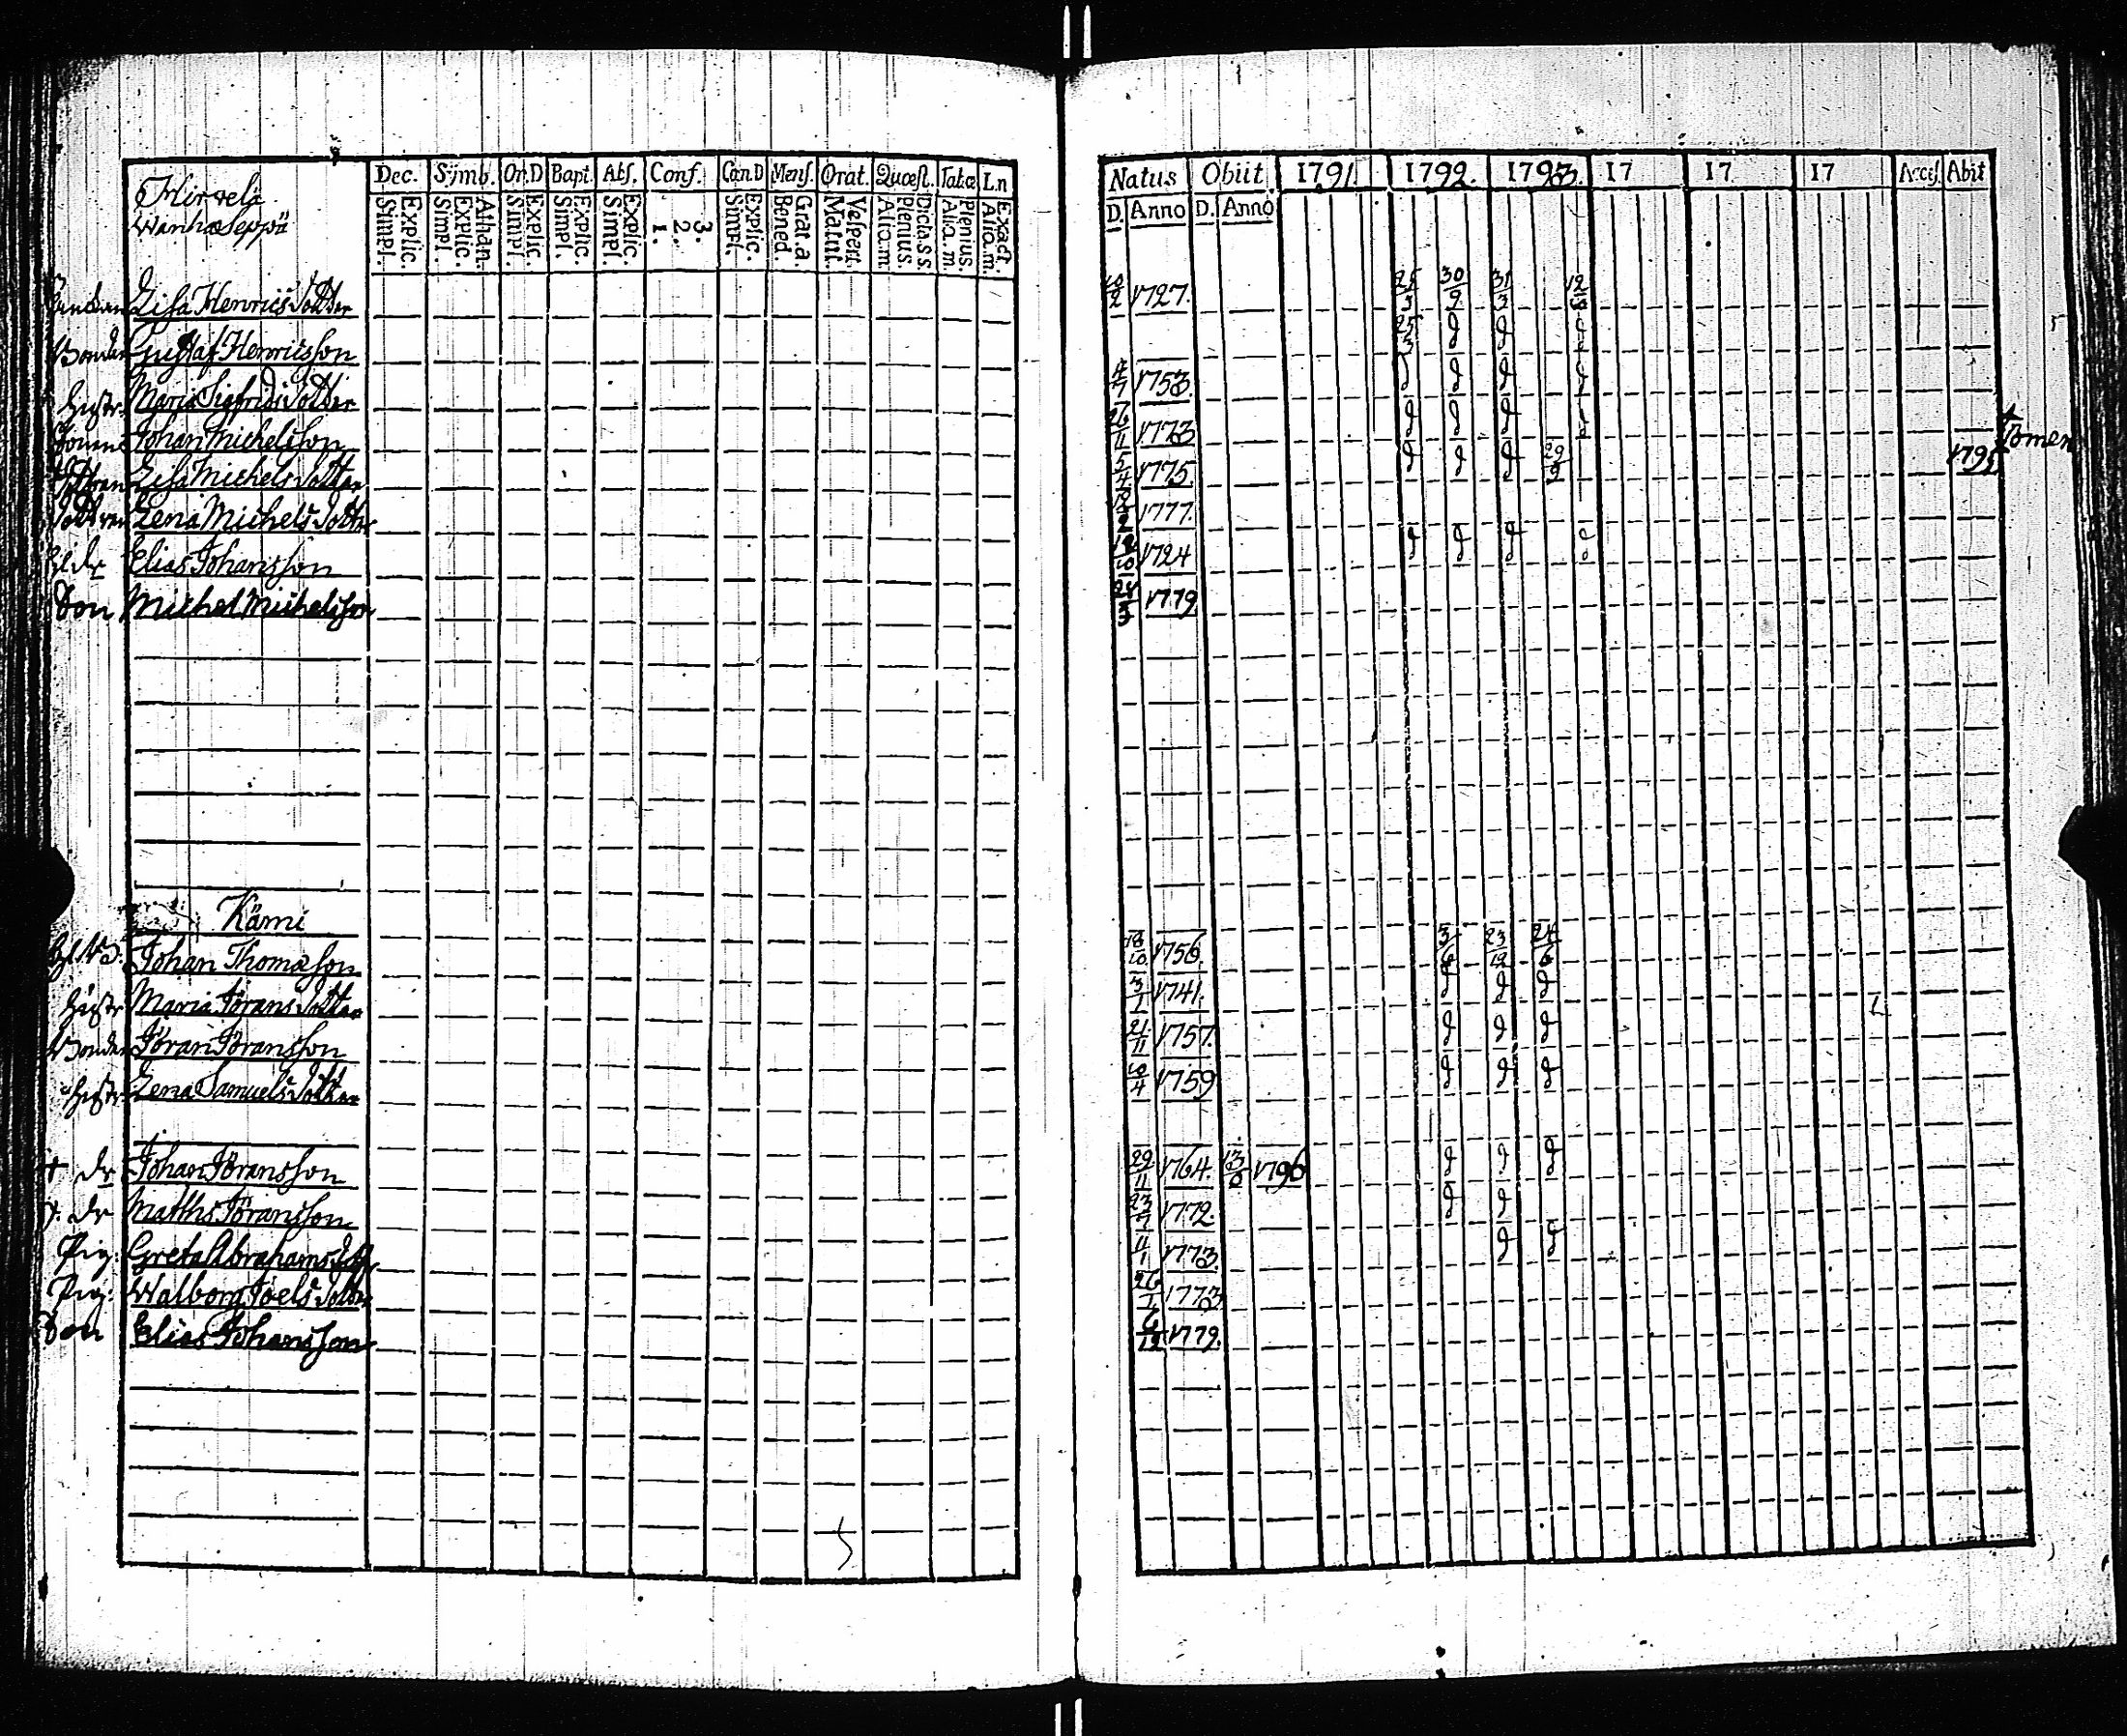 Hirvelä
Wanhaseppä
Dec. Symb. Or.D Bapt. Abs. Conf. Can.D Mens. Orat. Quæst. Tab.œ Ln
Explic. Simpl. Athan. Explic. Simpl. Explic. Simpl. Explic. Simpl. Explic. Simpl. 3. 2. 1. Explic. Simpl. Grat.a. Bened. Vespert. Matut. Dicta.s.s. Plenius. Aliq.m. Plenius. Aliq.m. Exact. Aliq.m.
Natus Obiit 1791. 1792. 1793. 17 17 17 Acces. Abit
D. Anno D. Anno
Enckan Lisa Henrics dotter 10/2 1727. 25/3 30/9 31/3 12/6
Bonden Gustaf Henricsson 25/3
hustr. Maria Sigfrids dotter 4/7 1753.
Sonen Johan Michelsson 26/11 1773
dottren Lisa Michels dotter 5/4 1775. 29/9 1795 Pomar
dottren Lena Michels dotter 1777.
Elias Johansson 1724
Son Michel Michelsson 1779
Kämi
Johan Thomæson 18/10 1756. 3/6 23/12 24/6
hustr Maria Jörans dotter 3/1 1741.
Bonden Jöran Jöransson 21/11 1757.
hustr Lena Samuels dotter 10/4 1759
+ dr Johan Jöransson 29/11 1764. 1796
dr Matths Jöransson 23/7 1772.
Pig. Greta Abrahams dotter 11/1 1773.
Pig. Walborg Joels dotter 26/1 1773
Son Elias Johansson 6/12 1779.